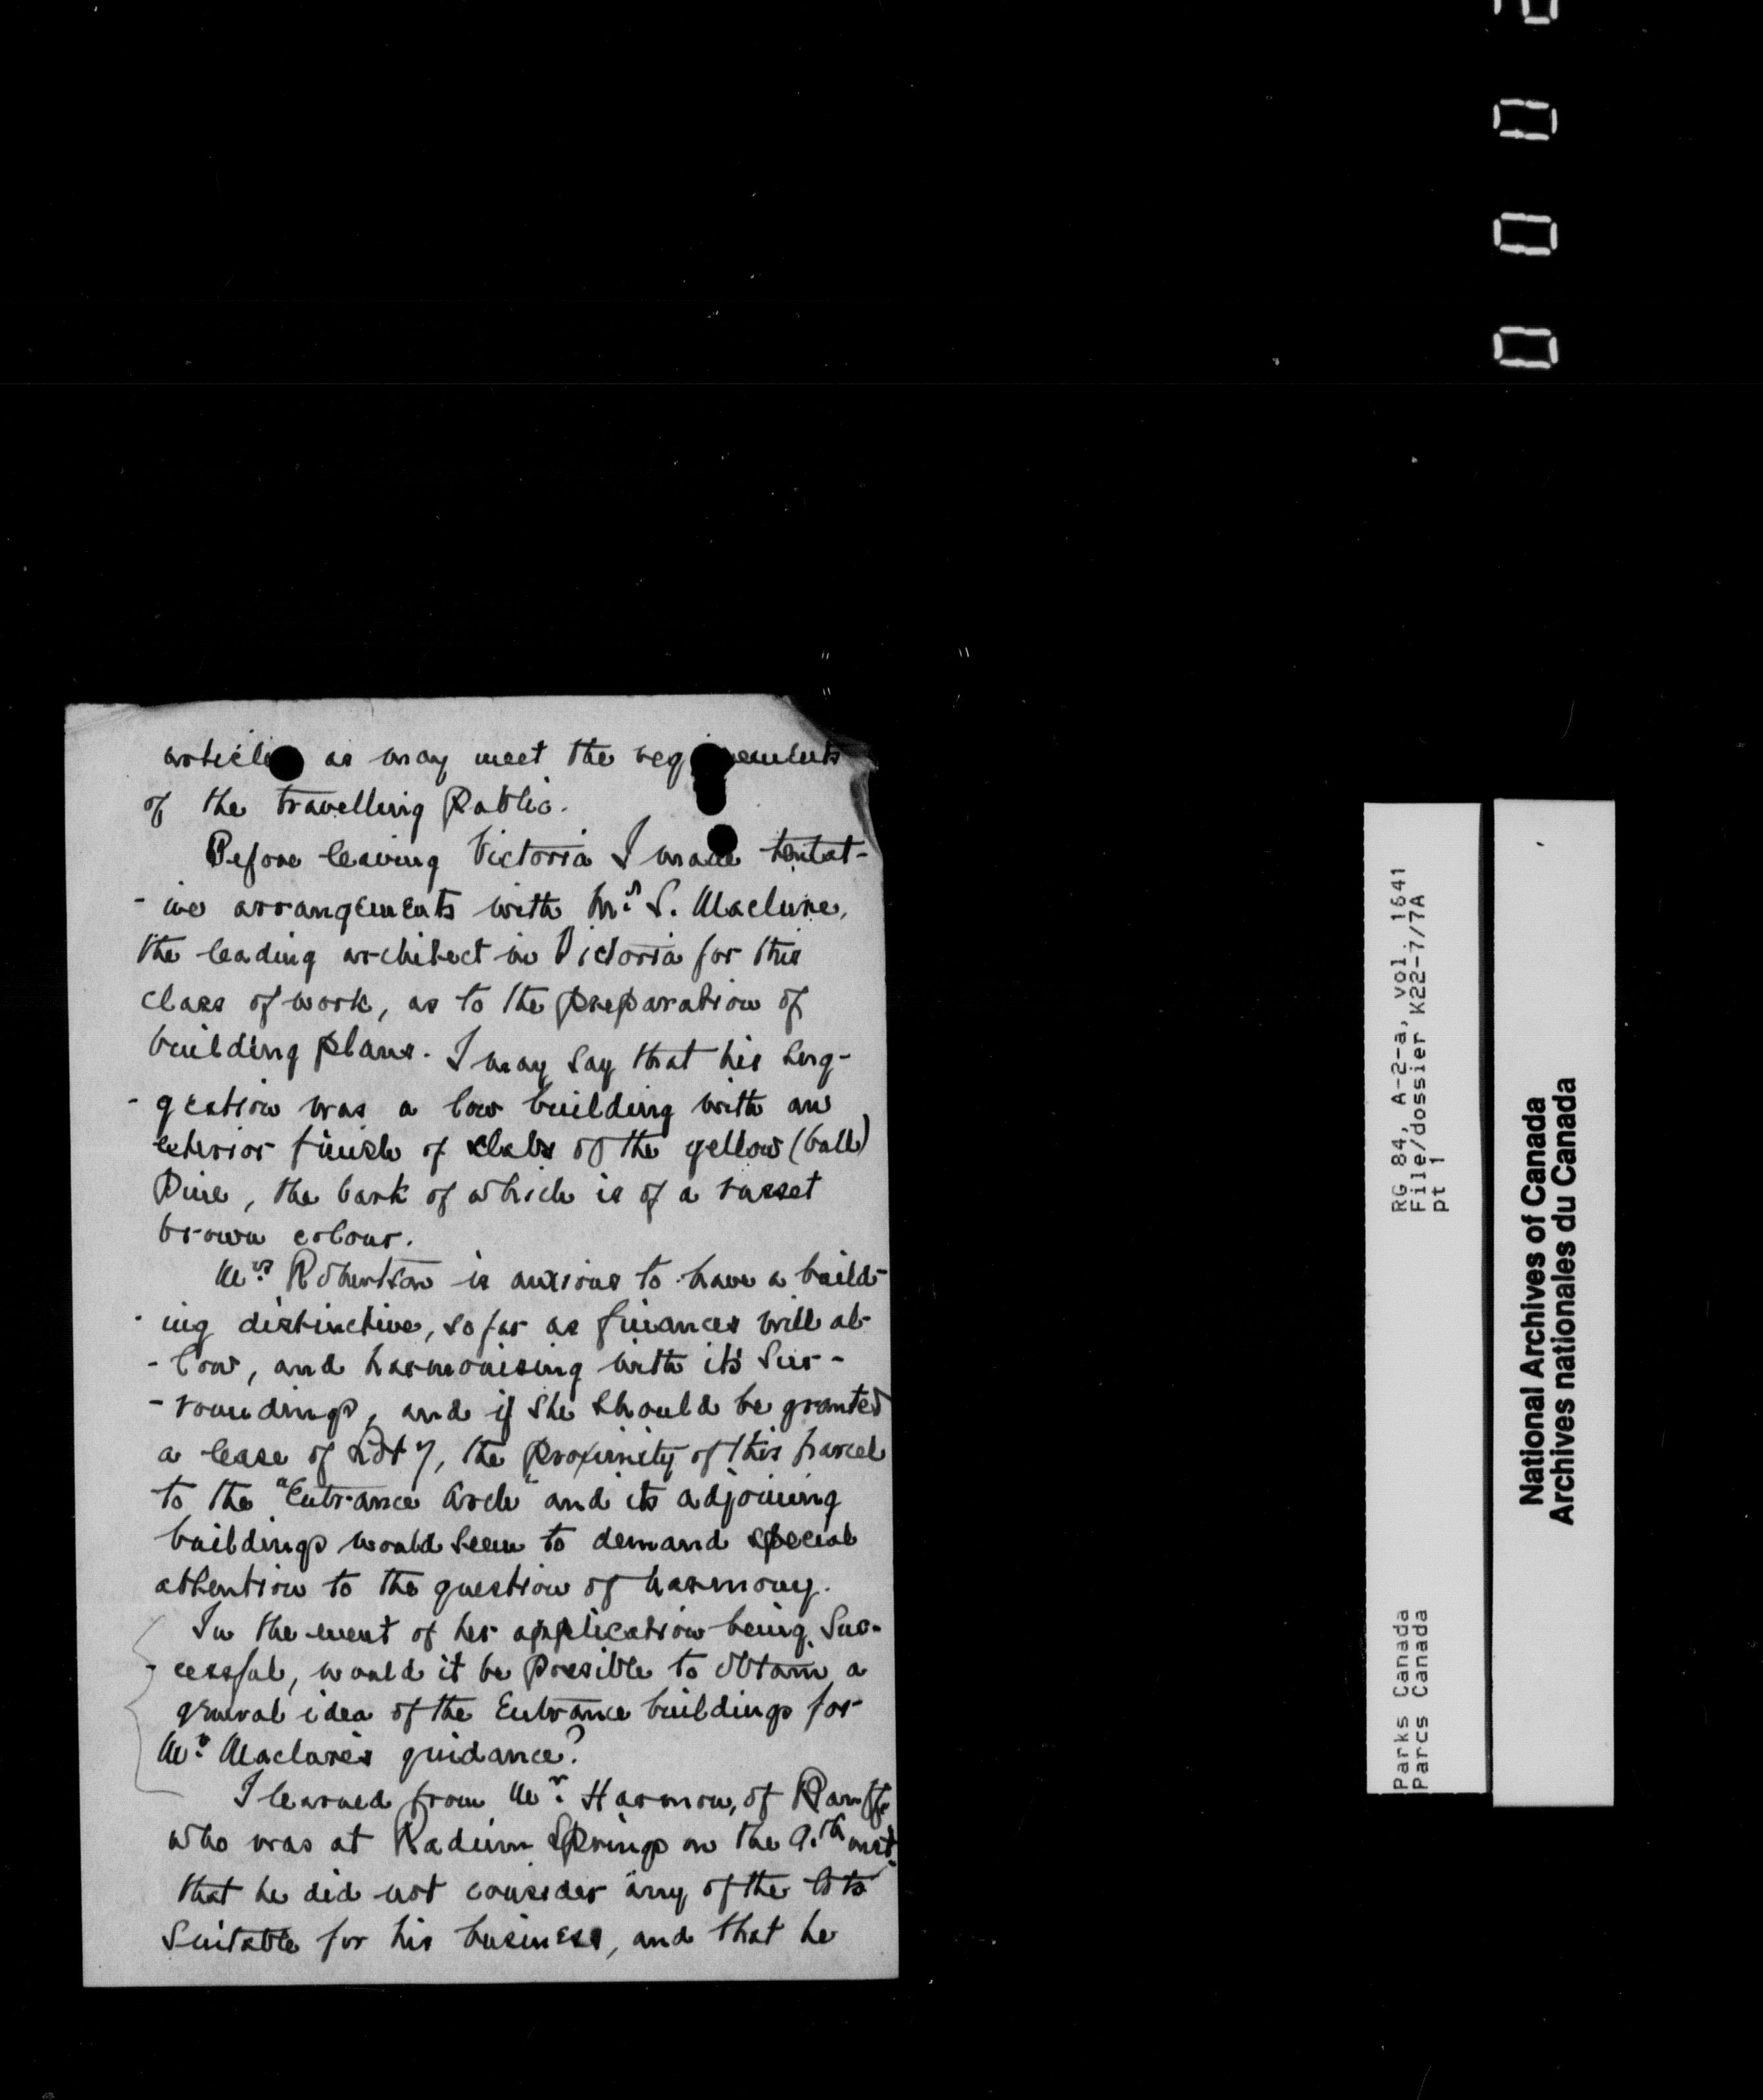 articles as may meet the requirements
of the travelling Public.
Before leaving Victoria I made tentat-
-ive arrangements with Mr. S. Maclure,
the leading architect in Victoria for this
class of work, as to the preparation of
building plans. I may say that his sug-
-gestion was a low building with an
exterior finish of slabs of the yellow (bull)
Pine, the bark of which is of a russet
brown colour.
Mrs. Robertson is anxious to have a build-
-ing distinctive, so far as finances will al-
-low, and harmonising with its sur-
-roundings, and if she should be granted
a lease of Lot 7, the proximity of this parcel
to the "Entrance Arch" and its adjoining
buildings would seem to demand special
attention to the question of harmony.
In the event of her application being suc-
-cessful, would it be possible to obtain a
general idea of the Entrance buildings for
Mr. Maclure's guidance?
I learned from Mr. Harmon, of Banff,
who was at Radium Springs on the 9th inst.
that he did not consider any of the lots
suitable for his business, and that he
RG 84, A-2-a, vol. 1641
File/dossier K22-7/7A
pt 1
Parks Canada
Parcs Canada
National Archives of Canada
Archives nationales du Canada